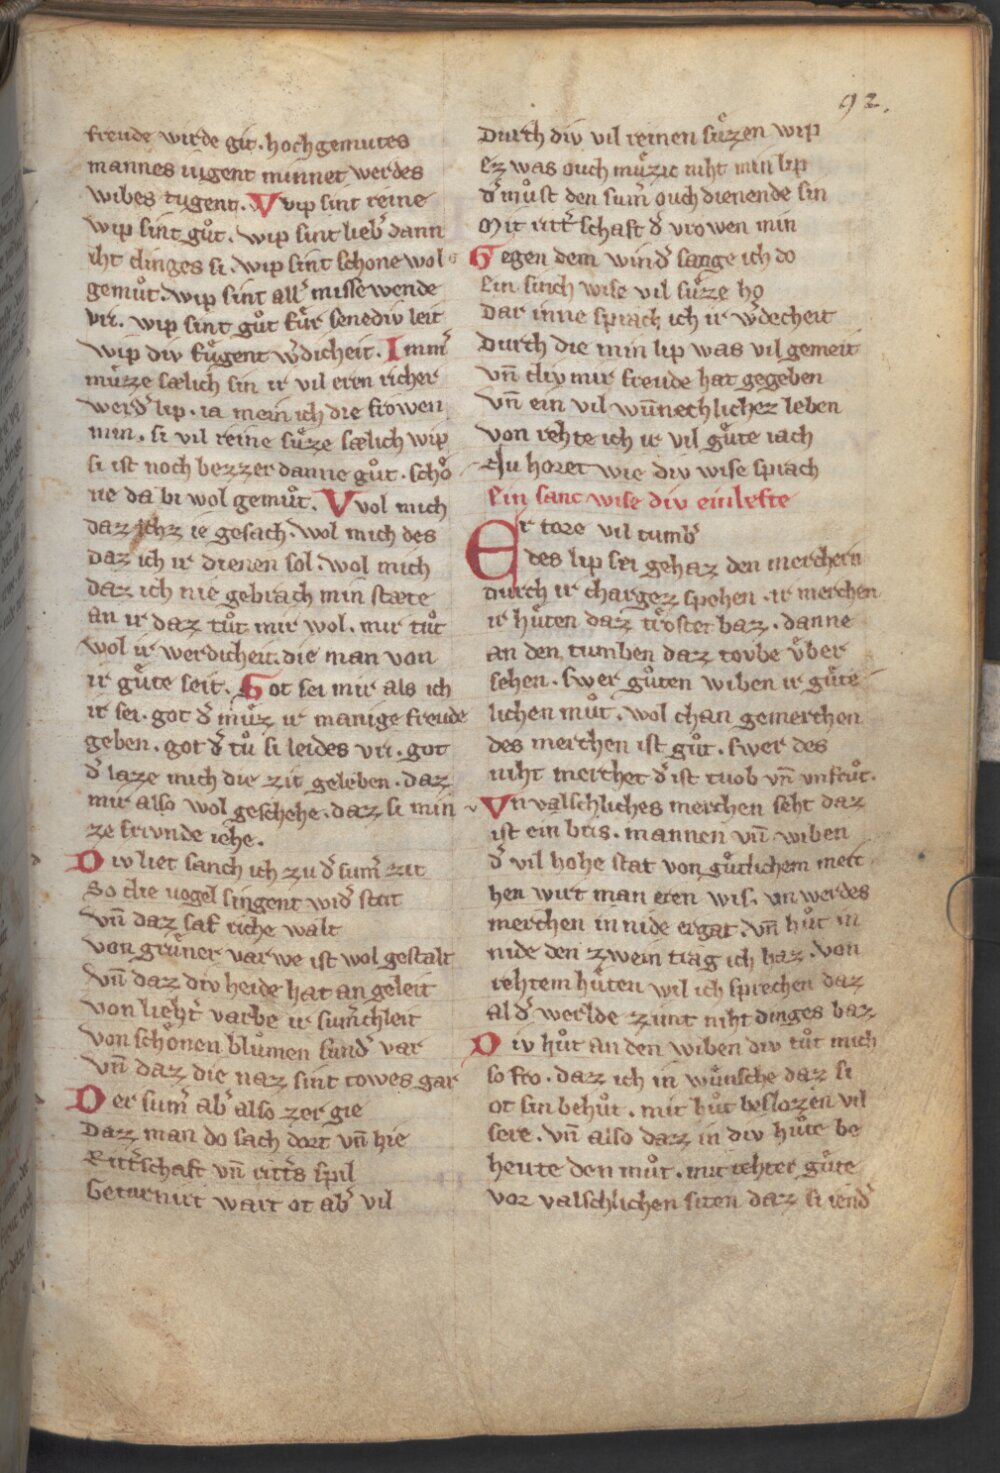 92.
freude wirde git. hochgemutes
mannes iugent minnet werdes
wibes tugent. Vvip sint reine
wip sint guͦt. wip sint lieb᷑ dann
iht dinges si. wip sint schone wol
gemuͦt. wip sint all᷑ missewende
vri. wip sint guͦt fuͤr senediv leit
wip div fuͤgent w᷑dicheit. Imm᷑
muͤzze sælich sin ir vil eren richer
werd᷑ lip. ia mein ich die frowen
min. si vil reine suͤze sælich wip
si ist noch bezzer danne guͦt. schoͤ
ne da bi wol gemuͦt. Vvol mich
daz ichz ie gesach. wol mich des
daz ich ir dienen sol. wol mich
daz ich nie gebrach min stæte
an ir daz tuͦt mir wol. mir tuͦt
wol ir werdicheit. die man von
ir guͤte seit. Got sei mir als ich
ir sei. got d᷑ muͤz ir manige freude
geben. got d᷑ tuͦ si leides vri. got
d᷑ laze mich die zit geleben. daz
mir also wol geschehe. daz si min
ze frivnde iehe.
Div liet sanch ich zu d᷑ sum᷑ zit
So die uogel singent wid᷑ strit
vn̄ daz saf riche walt
von gruͤner varwe ist wol gestalt
vn̄ daz div heide hat an geleit
von lieht᷑ varbe ir sum᷑chleit
von schoͤnen bluͦmen sund᷑ var
vn̄ daz die naz sint towes gar
Der sum᷑ ab᷑ also zer gie
Daz man do sach dort vn̄ hie
Ritt᷑schaft vn̄ ritt᷑s spil
Geturnirt wart ot ab᷑ vil
Durch div vil reinen suͤzen wip
Ez was ouch muͤzic niht min lip
d᷑ muͦst den sum᷑ ouch dienende sin
Mit ritt᷑schaft d᷑ vrowen min
Gegen dem wind᷑ sange ich do
Ein sinch wise vil suͤzze ho
Dar inne sprach ich ir w᷑decheit
Durch die min lip was vil gemeit
vn̄ div mir freude hat gegeben
vn̄ ein vil wūnechlichez leben
von rehte ich ir vil guͤte iach
Nu horet wie div wise sprach
Ein sanc wise div einlefte
Er tore vil tumb᷑
des lip sei gehaz den merchern
durch ir chargez spehen. ir merchen
ir huͤten daz troͤstet baz. danne
an den tumben daz tovbe uͤber
sehen. swer guͦten wiben ir guͤte
lichen muͦt. wol chan gemerchen
des merchen ist guͦt. swer des
niht merchet d᷑ ist truob vn̄ vnfruͦt.
Vn valschliches merchen seht daz
ist ein bris. mannen vn̄ wiben
d᷑ vil hohe stat von guͤtlichem merc
hen wirt man eren wis. vn werdes
merchen in nide ergat. vn̄ huͦt in
nide den zwein trag ich haz. von
rehtem huͤten wil ich sprechen daz
al d᷑ werlde zimt niht dinges baz
Div huͦt an den wiben div tuͦt mich
so fro. daz ich in wuͤnsche daz si
ot sin behuͦt. mit huͦt beslozen vil
sere. vn̄ also daz in div huͦte be
heute den muͦt. mit rehter guͤte
vor valschlichen siten daz si iend᷑